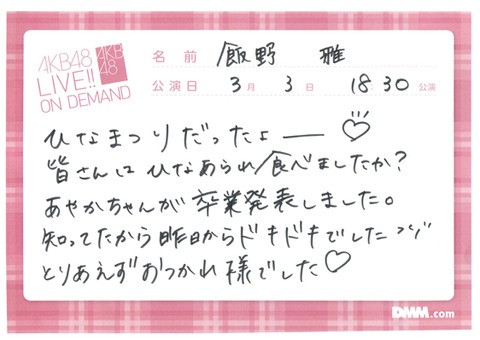 AKB48
LIVE!!
ON DEMAND
AKB
48
名 前 飯野 雅
公演日 3月 3日 18:30 公演
ひなまつりだったよー♡
皆さんは ひなあられ食べましたか?
あやかちゃんが卒業発表しました。
知ってたから昨日からドキドキでした
とりあえずおつかれ様でした♡
DMM.com